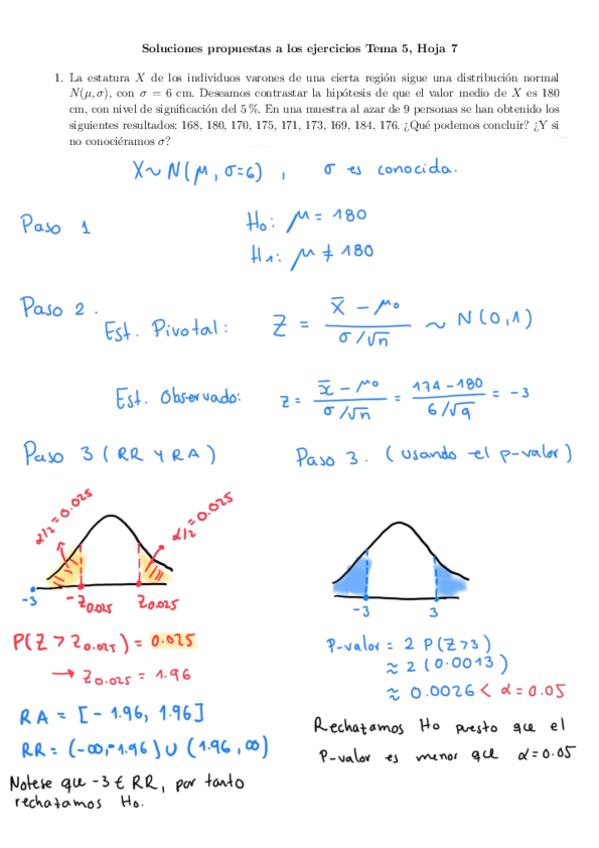 Soluciones propuestas a los ejercicios Tema 5, Hoja 7
1. La estatura X de los individuos varones de una cierta región sigue una distribución normal
N(μ, σ), con σ = 6 cm. Deseamos contrastar la hipótesis de que el valor medio de X es 180
cm, con nivel de significación del 5 %. En una muestra al azar de 9 personas se han obtenido los
siguientes resultados: 168, 180, 170, 175, 171, 173, 169, 184, 176. ¿Qué podemos concluir? ¿Y si
no conociéramos σ?
X ~ N(μ, σ=6) , σ es conocida.
Paso 1 H₀: μ = 180
H₁: μ ≠ 180
Paso 2.
Est. Pivotal: Z = (X̄ - μ₀) / (σ/√n) ~ N(0,1)
Est. Observado: z = (x̄ - μ₀) / (σ/√n) = (174 - 180) / (6/√9) = -3
Paso 3 (RR y RA)
Paso 3. (usando el p-valor)
α/2 = 0.025
α/2 = 0.025
-3 -Z0.025 Z0.025
-3 3
P(Z > Z0.025) = 0.025
→ Z0.025 = 1.96
RA = [-1.96, 1.96]
RR = (-∞, -1.96) ∪ (1.96, ∞)
Notese que -3 ∈ RR, por tanto
rechatamos Ho.
P-valor = 2 P(Z>3)
≈ 2 (0.0013)
≈ 0.0026 < α = 0.05
Rechatamos Ho puesto que el
P-valor es menor que α=0.05